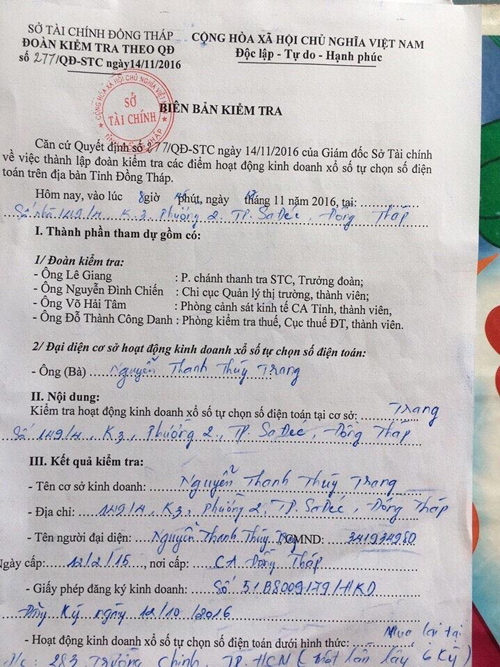 SỞ TÀI CHÍNH ĐỒNG THÁP
ĐOÀN KIỂM TRA THEO QĐ
số 277/QĐ-STC ngày14/11/2016
CỘNG HÒA XÃ HỘI CHỦ NGHĨA VIỆT NAM
Độc lập - Tự do - Hạnh phúc
SỞ
TÀI CHÍNH
BIÊN BẢN KIỂM TRA
Căn cứ Quyết định số 277/QĐ-STC ngày 14/11/2016 của Giám đốc Sở Tài chính
về việc thành lập đoàn kiểm tra các điểm hoạt động kinh doanh xổ số tự chọn số điện
toán trên địa bàn Tỉnh Đồng Tháp.
Hôm nay, vào lúc 8 giờ phút, ngày tháng 11 năm 2016, tại:
Số nhà 149/1, K3, Phường 2, TP. Sa Đéc, Đồng Tháp
I. Thành phần tham dự gồm có:
1/ Đoàn kiểm tra:
- Ông Lê Giang : P. chánh thanh tra STC, Trưởng đoàn;
- Ông Nguyễn Đình Chiến : Chi cục Quản lý thị trường, thành viên;
- Ông Võ Hải Tâm : Phòng cảnh sát kinh tế CA Tỉnh, thành viên,
- Ông Đỗ Thành Công Danh : Phòng kiểm tra thuế, Cục thuế ĐT, thành viên.
2/ Đại diện cơ sở hoạt động kinh doanh xổ số tự chọn số điện toán:
- Ông (Bà) Nguyễn Thanh Thúy Trang
II. Nội dung:
Kiểm tra hoạt động kinh doanh xổ số tự chọn số điện toán tại cơ sở: Trang
Số 149/1, K3, Phường 2, TP. Sa Đéc, Đồng Tháp
III. Kết quả kiểm tra:
- Tên cơ sở kinh doanh: Nguyễn Thanh Thúy Trang
- Địa chỉ: 149/1, K3, Phường 2, TP. Sa Đéc, Đồng Tháp
- Tên người đại diện: Nguyễn Thanh Thúy CMND: 341934250
Ngày cấp: 12/2/15, nơi cấp: CA Đồng Tháp
- Giấy phép đăng ký kinh doanh: Số 51B8009179/HKD
Đăng Ký ngày 12/10/2016
- Hoạt động kinh doanh xổ số tự chọn số điện toán dưới hình thức: Mua lại tại
283 Trường Chinh, TP. HCM (một lần 6 Kỳ)